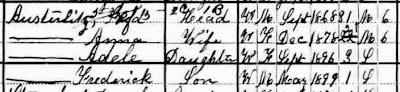 Austerlitz, Fred Head W M Sept 1868 31 M 6
—— Anna Wife W F Dec 1878 M 6
—— Adele Daughter W F Sept 1896 3 S
—— Frederick Son W M May 1899 1 S